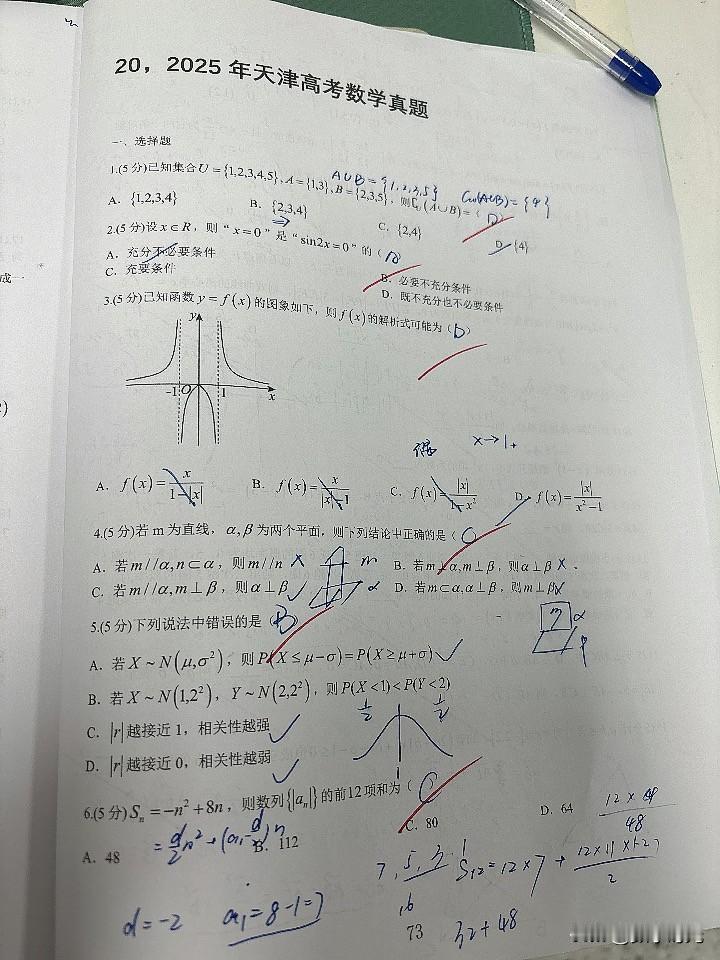 20，2025 年天津高考数学真题
一、选择题
1.(5 分)已知集合U = {1,2,3,4,5}, A = {1,3}, B = {2,3,5}, 则∁U(A∪B)=( D
A∪B = {1,2,3,5}
Cu(A∪B) = {4}
A. {1,2,3,4} B. {2,3,4} C. {2,4} D. {4}
2.(5 分)设 x∈R，则“ x=0 ”是“ sin2x=0 ”的（ A
A．充分不必要条件 B．必要不充分条件
C．充要条件 D．既不充分也不必要条件
3.(5 分)已知函数 y = f(x) 的图象如下，则 f(x) 的解析式可能为（ D ）
y
-1 O 1 x
偶 x→1+
A. f(x)=x/(1-|x|) B. f(x)=x/(|x|-1) C. f(x)=|x|/(1-x²) D. f(x)=|x|/(x²-1)
4.(5 分)若 m 为直线，α,β 为两个平面，则下列结论中正确的是（ C
A．若m//α,n⊂α，则m//n × B．若m⊥α,m⊥β，则α⊥β ×
m
C．若m//α,m⊥β，则α⊥β ✓ D．若m⊂α,α⊥β，则m⊥β ×
α
m α
β
5.(5 分)下列说法中错误的是 B
A．若 X ~ N(μ,σ²)，则 P(X≤μ-σ)=P(X≥μ+σ) ✓
B．若 X ~ N(1,2²)，Y ~ N(2,2²)，则 P(X<1)<P(Y<2)
1/2 1/2
C．|r| 越接近 1，相关性越强 ✓
D．|r| 越接近 0，相关性越弱 ✓
6.(5 分) Sₙ = -n²+8n，则数列{|aₙ|}的前12项和为（ C
A．48 B．112 C．80 D．64
= d/2 n² + (a₁-d/2)n
7, 5, 3, 1
16
S₁₂=12×7+
d=-2 a₁=8-1=7
32+48
48
73